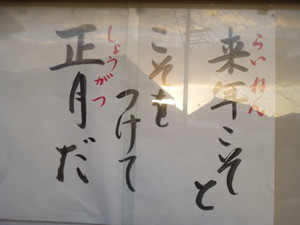 来年こそと
らいねん
こそを
つけて
正月だ
しょうがつ